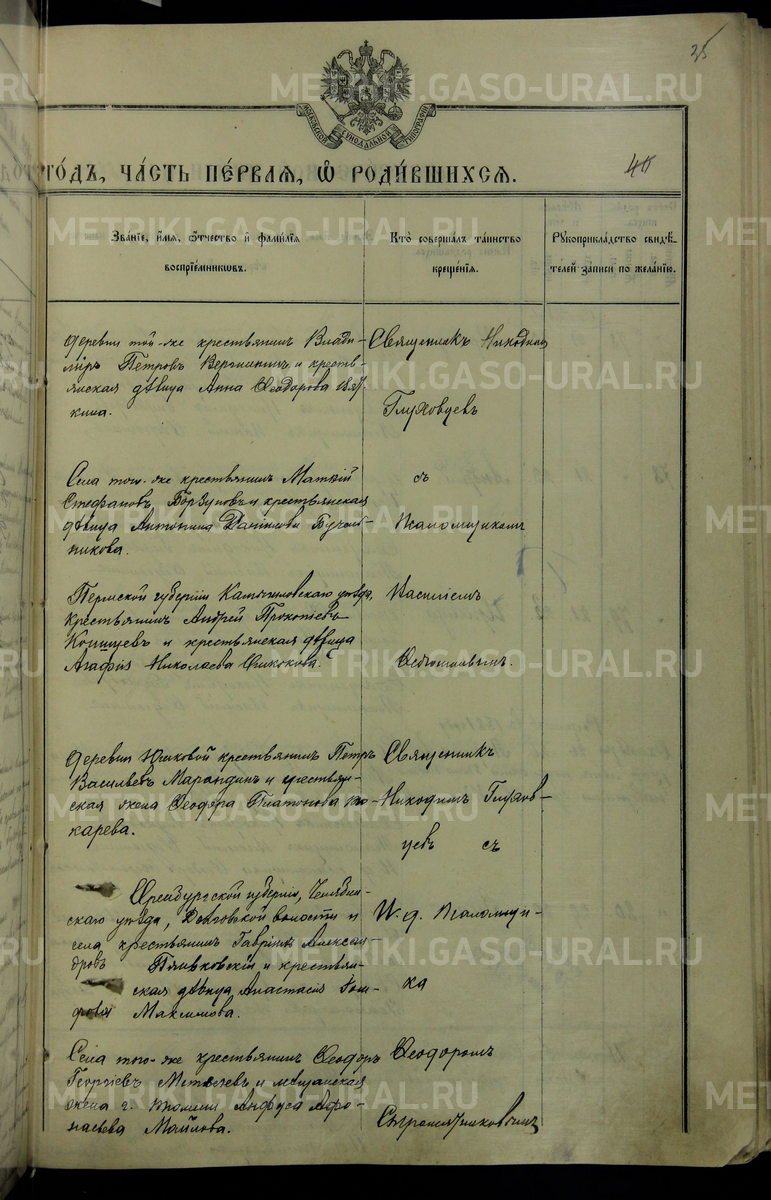 35
МОСКОВСКОЙ СѴНОДАЛЬНОЙ ТИПОГРАФІИ
ГО́ДЪ, ЧА́СТЬ ПЕ́РВАЯ, Ѡ РОДИ́ВШИХСЯ.
40
Зва́нїе, и́мя, ѻ́тчество и҆ фами́лїя
воспрїе́мникѡвъ.
Кто̀ соверша́лъ та́инство
креще́нїя.
Рꙋкоприкла́дство свидѣ́-
телей за́писи по жела́нїю.
деревни той-же крестьянинъ Влади-
міръ Петровъ и кресть-
янская дѣвица Анна Ѳеодорова
кина.
Священникъ Никодим
Глуховцевъ
Села того-же крестьянинъ Матвій
Стефановъ Борзуновъ и крестьянская
дѣвица Антонина Даніилова Бучель-
никова.
съ
псаломщикомъ
Пермской губерніи Камышловскаго уѣзда,
крестьянинъ Андрей Прокопіевъ
и крестьянская дѣвица
Агафія Николаева
Василіемъ
деревни Юшковой крестьянинъ Петръ
Васильевъ Марандинъ и крестьян-
ская жена Ѳеодора Платонова То-
карева.
Священникъ
Никодимъ Глухов-
цевъ съ
Оренбургской губерніи, Челябин-
скаго уѣзда, волости и
села крестьянинъ Гавріилъ Алексан-
дровъ и крестьян-
ская дѣвица Анастасія
Максимова.
И. д. псаломщи-
ка
Села того-же крестьянинъ Ѳеодоръ
Георгіевъ и мѣщанская
жена г. Тюмени Анфуса Афо-
насьева
Ѳеодоромъ
METRIKI.GASO-URAL.RU